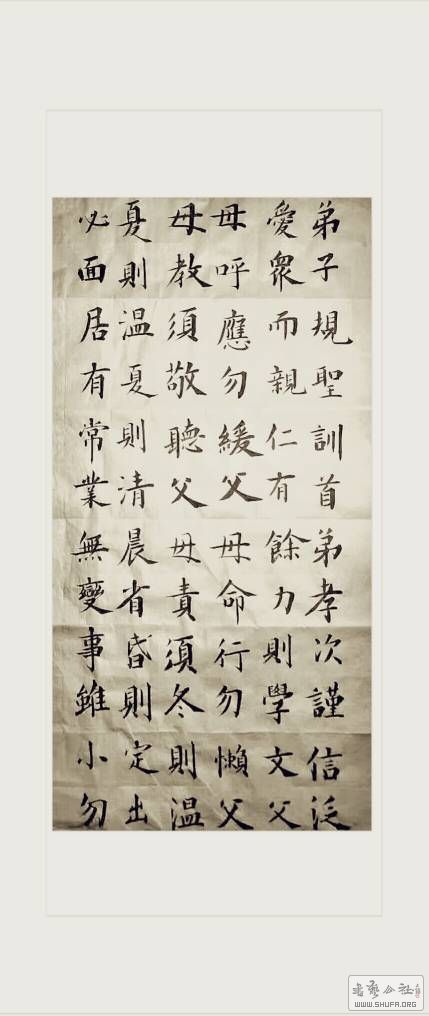 弟子規聖訓首弟孝次謹信泛
愛眾而親仁有餘力則學文父
母呼應勿緩父母命行勿懶父
母教須敬聽父母責須冬則温
夏則温夏則清晨省昏則定出
必面居有常業無變事雖小勿
书艺公社
WWW.SHUFA.ORG